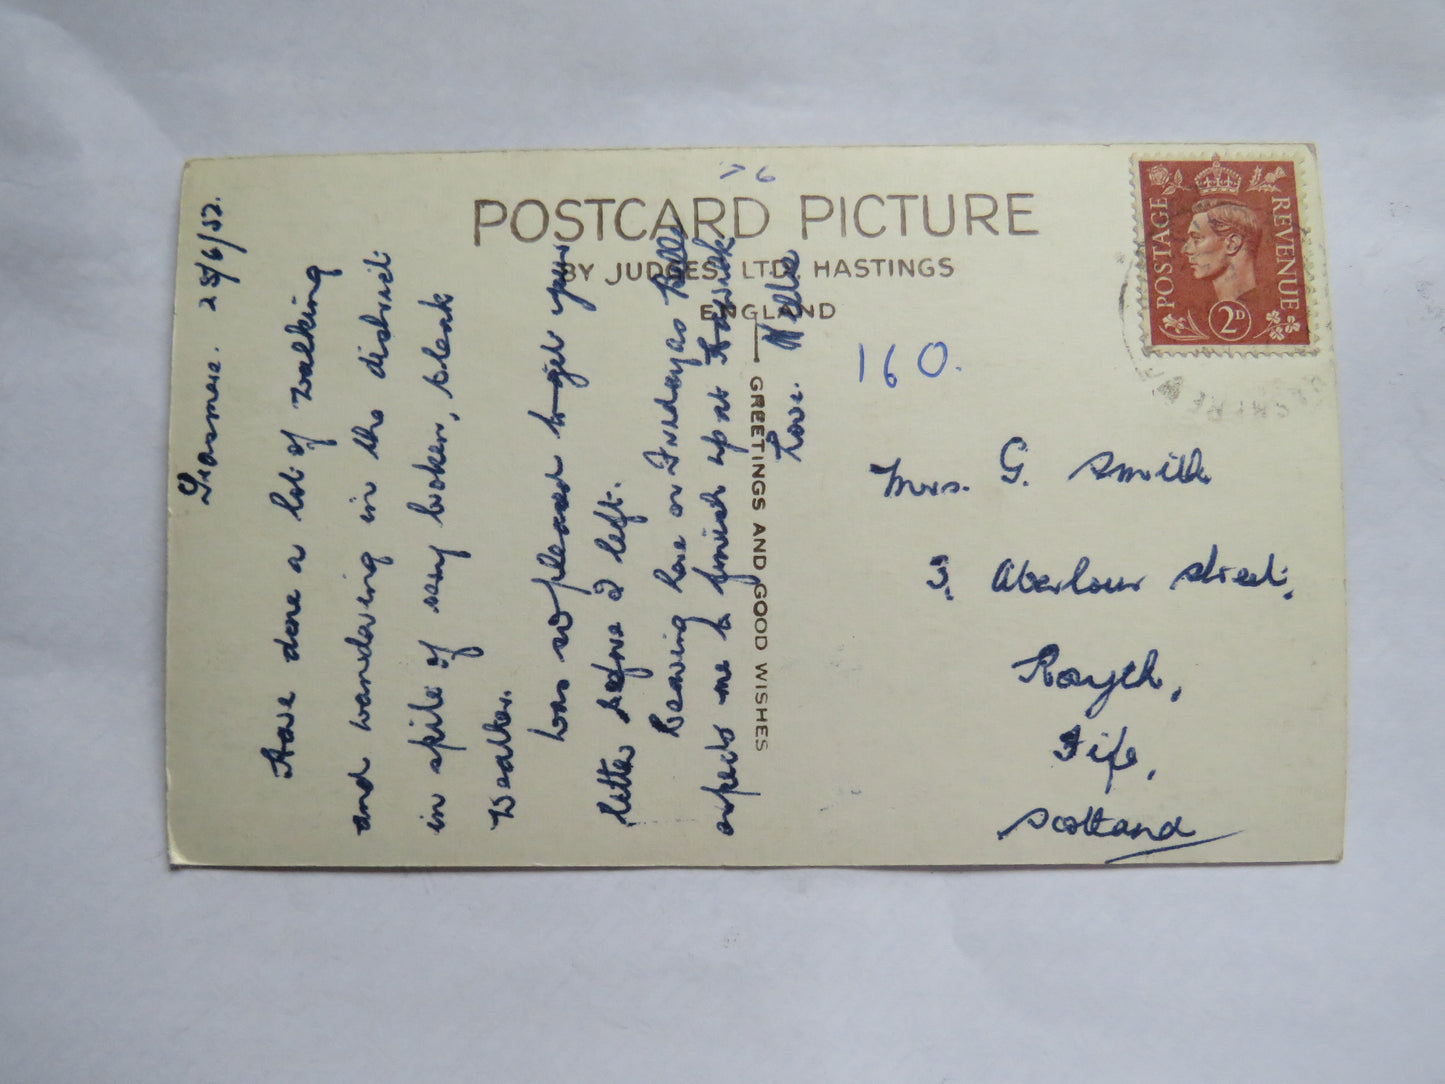 POSTCARD PICTURE
BY JUDGES LTD. HASTINGS
ENGLAND
GREETINGS AND GOOD WISHES
POSTAGE
REVENUE
2D
160.
Mrs. G. Smith
3, Aberlour Street,
Rosyth,
Fife,
Scotland
Grasmere. 25/6/52.
Have done a lot of walking
and wandering in the district
in spite of very broken, bleak
weather.
Was so pleased to get your
letter before I left.
Leaving here on Friday as Bells
expects me to finish up at Hawick
Love. Nellie